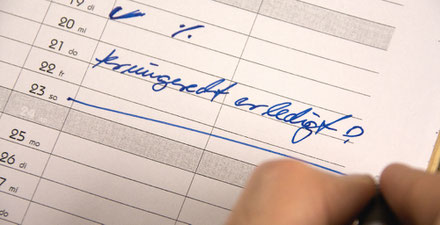 19 di
%
20 mi
21 do
termingerecht erledigt!
22 fr
23 sa
24
25 mo
26 di
27 mi
do